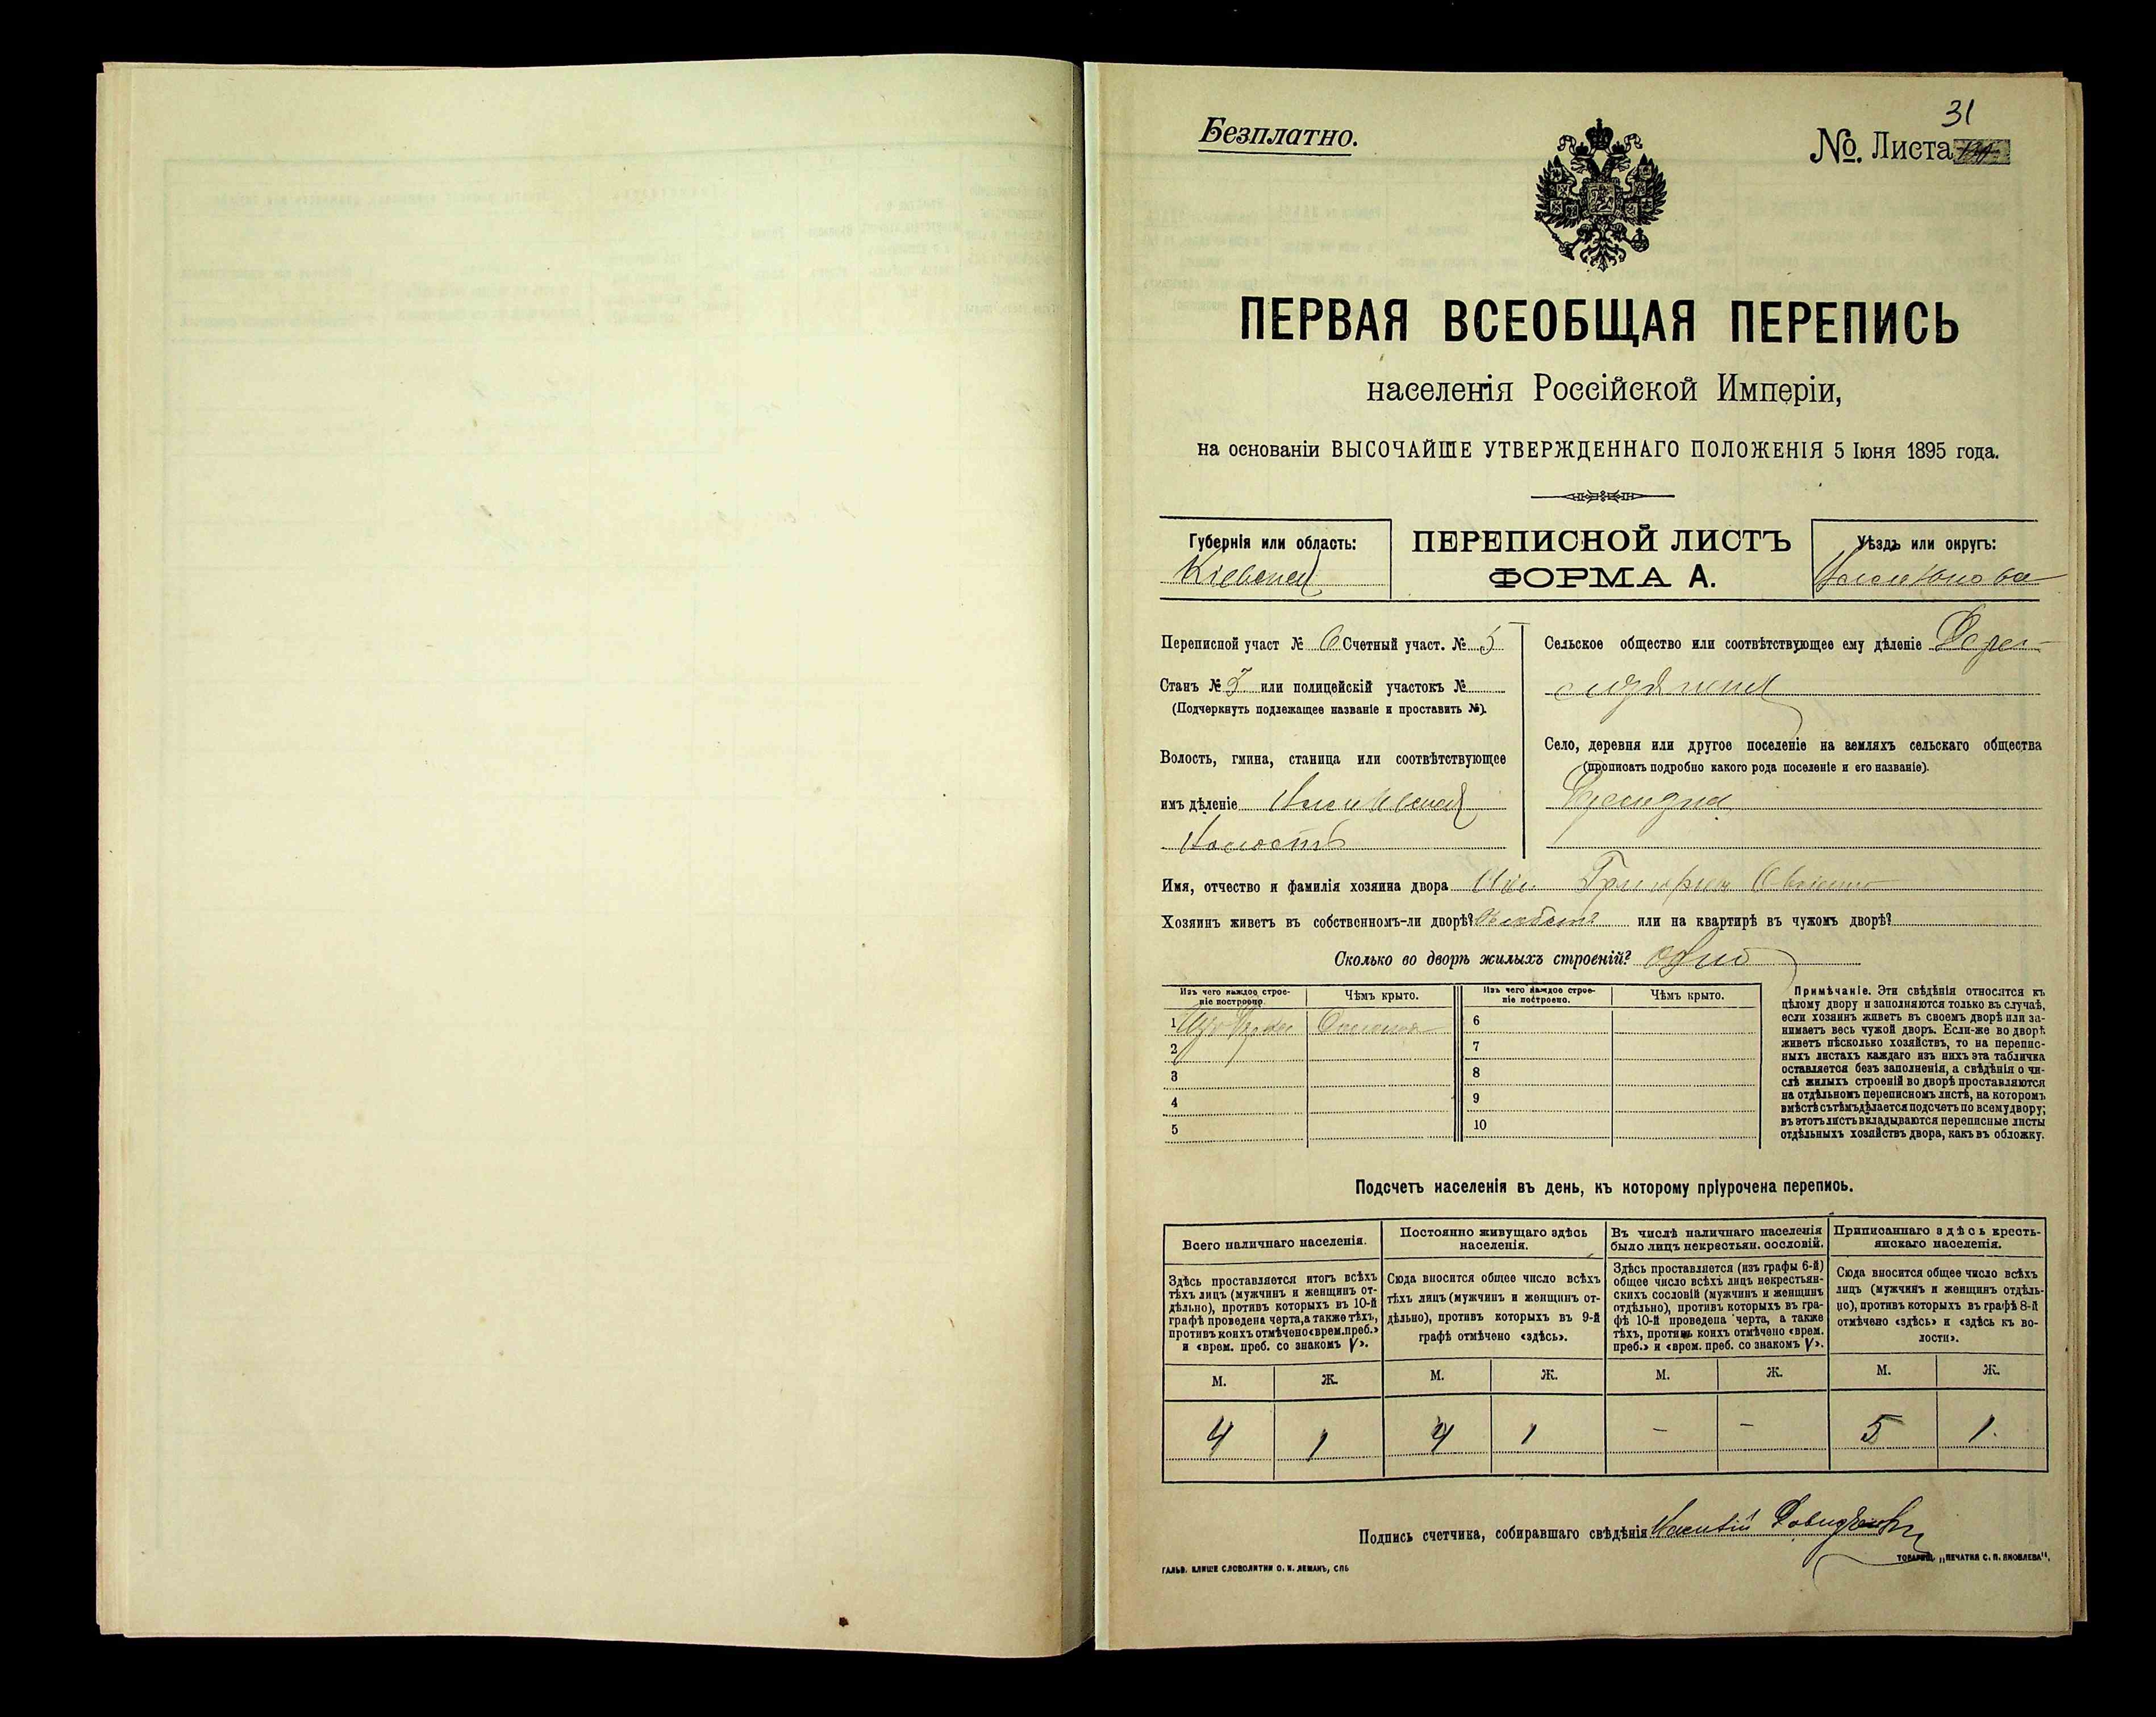 Безплатно.
31
№. Листа
ПЕРВАЯ ВСЕОБЩАЯ ПЕРЕПИСЬ
населенія Россійской Имперіи,
на основаніи ВЫСОЧАЙШЕ УТВЕРЖДЕННАГО ПОЛОЖЕНІЯ 5 Іюня 1895 года.
Губернія или область:
Кіевская
ПЕРЕПИСНОЙ ЛИСТЪ
ФОРМА А.
Уѣздъ или округъ:
Переписной участ № 6 Счетный участ. № 5
Станъ № или полицейскій участокъ №
(Подчеркнуть подлежащее названіе и проставить №).
Волость, гмина, станица или соотвѣтствующее
имъ дѣленіе
Волость
Сельское общество или соотвѣтствующее ему дѣленіе
Село, деревня или другое поселеніе на земляхъ сельскаго общества
(прописать подробно какого рода поселеніе и его названіе).
Имя, отчество и фамилія хозяина двора
Хозяинъ живетъ въ собственномъ-ли дворѣ? или на квартирѣ въ чужомъ дворѣ?
Сколько во дворѣ жилыхъ строеній? одно
Изъ чего каждое строе-
ніе построено.
Чѣмъ крыто.
Изъ чего каждое строе-
ніе построено.
Чѣмъ крыто.
1
2
3
4
5
6
7
8
9
10
Примѣчаніе. Эти свѣдѣнія относятся къ
цѣлому двору и заполняются только въ случаѣ,
если хозяинъ живетъ въ своемъ дворѣ или за-
нимаетъ весь чужой дворъ. Если-же во дворѣ
живетъ нѣсколько хозяйствъ, то на перепис-
ныхъ листахъ каждаго изъ нихъ эта табличка
оставляется безъ заполненія, а свѣдѣнія о чи-
слѣ жилыхъ строеній во дворѣ проставляются
на отдѣльномъ переписномъ листѣ, на которомъ
вмѣстѣ съ тѣмъ дѣлается подсчетъ по всему двору;
въ этотъ листъ вкладываются переписные листы
отдѣльныхъ хозяйствъ двора, какъ въ обложку.
Подсчетъ населенія въ день, къ которому пріурочена перепись.
Всего наличнаго населенія.
Здѣсь проставляется итогъ всѣхъ
тѣхъ лицъ (мужчинъ и женщинъ от-
дѣльно), противъ которыхъ въ 10-й
графѣ проведена черта, а также тѣхъ,
противъ коихъ отмѣчено «врем. преб.»
и «врем. преб. со знакомъ V».
Постоянно живущаго здѣсь
населенія.
Сюда вносится общее число всѣхъ
тѣхъ лицъ (мужчинъ и женщинъ от-
дѣльно), противъ которыхъ въ 9-й
графѣ отмѣчено «здѣсь».
Въ числѣ наличнаго населенія
было лицъ некрестьян. сословій.
Здѣсь проставляется (изъ графы 6-й)
общее число всѣхъ лицъ некрестьян-
скихъ сословій (мужчинъ и женщинъ
отдѣльно), противъ которыхъ въ гра-
фѣ 10-й проведена черта, а также
тѣхъ, противъ коихъ отмѣчено «врем.
преб.» и «врем. преб. со знакомъ V».
Приписаннаго здѣсь кресть-
янскаго населенія.
Сюда вносится общее число всѣхъ
лицъ (мужчинъ и женщинъ отдѣль-
но), противъ которыхъ въ графѣ 8-й
отмѣчено «здѣсь» и «здѣсь къ во-
лости».
М. Ж. М. Ж. М. Ж. М. Ж.
4 1 4 1 – – 5 1.
Подпись счетчика, собиравшаго свѣдѣнія
ГАЛЬВ. КЛИШЕ СЛОВОЛИТНИ О. И. ЛЕМАНЪ, СПБ
ТОВАРИЩ. „ПЕЧАТНЯ С. П. ЯКОВЛЕВА".